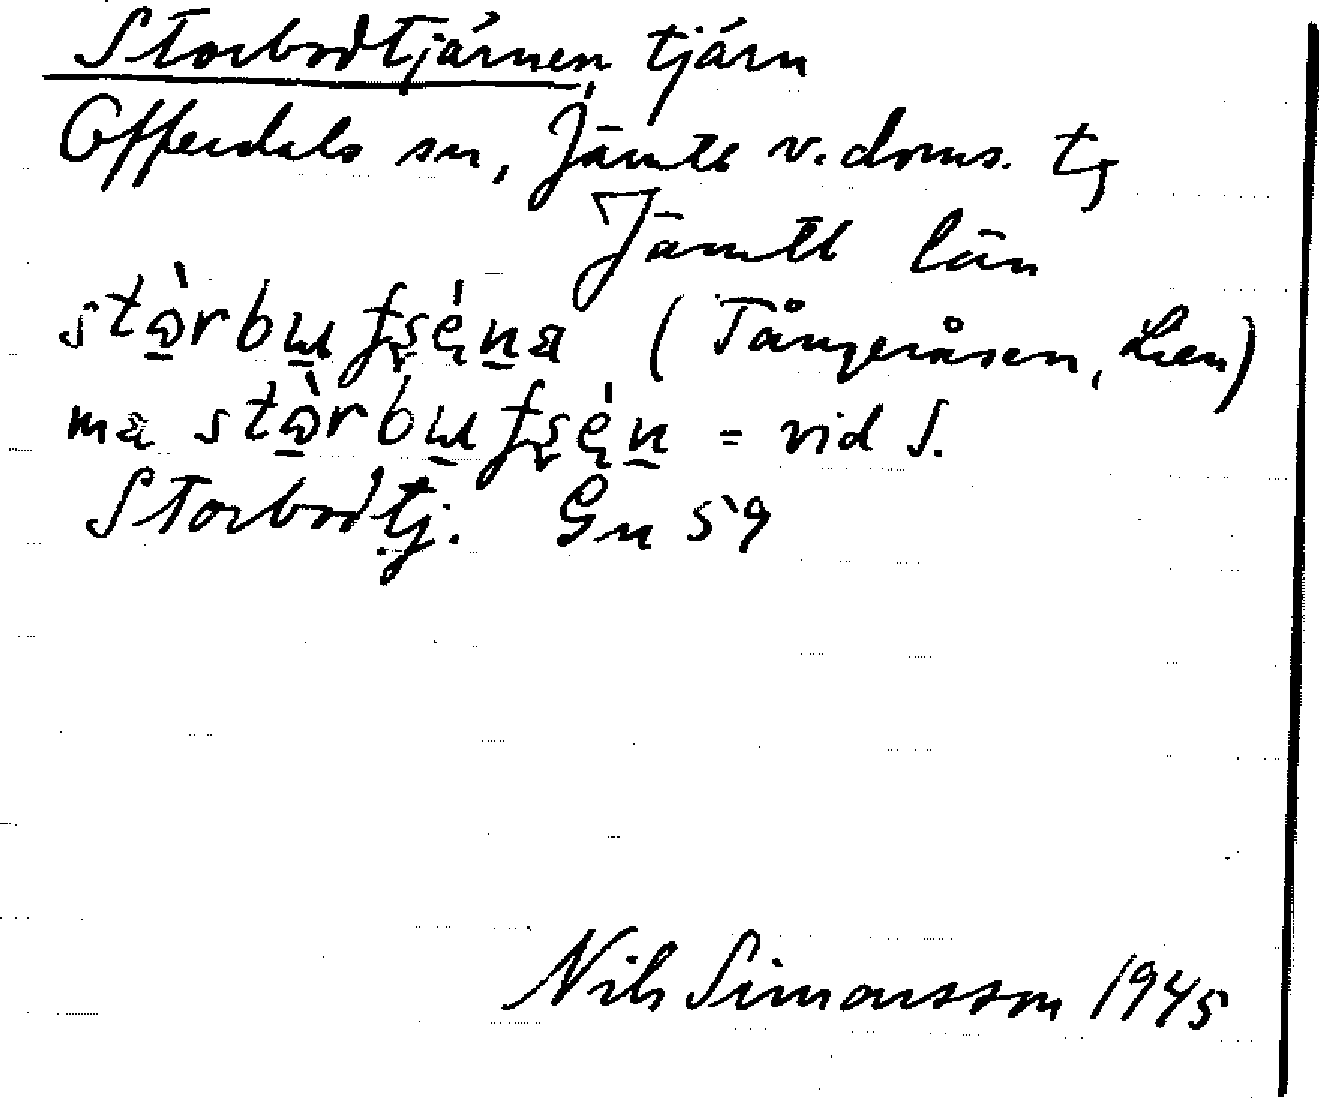 Storbodtjärnen, tjärn
Offerdals sn, Jämtl v. doms. tg
Jämtl län
(Tångeråsen, Lien)
= vid S.
Storbodtj. Gu 59
Nils Simonsson 1945